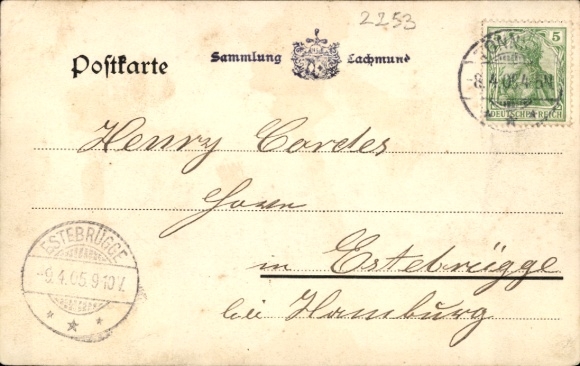 2253
Postkarte
Sammlung Lachmund
BONN
8.4.05.4-5N
5
DEUTSCHES REICH
Henry Cordes
in Estebrügge
bei Hamburg
ESTEBRÜGGE
-9.4.05.9-10V.